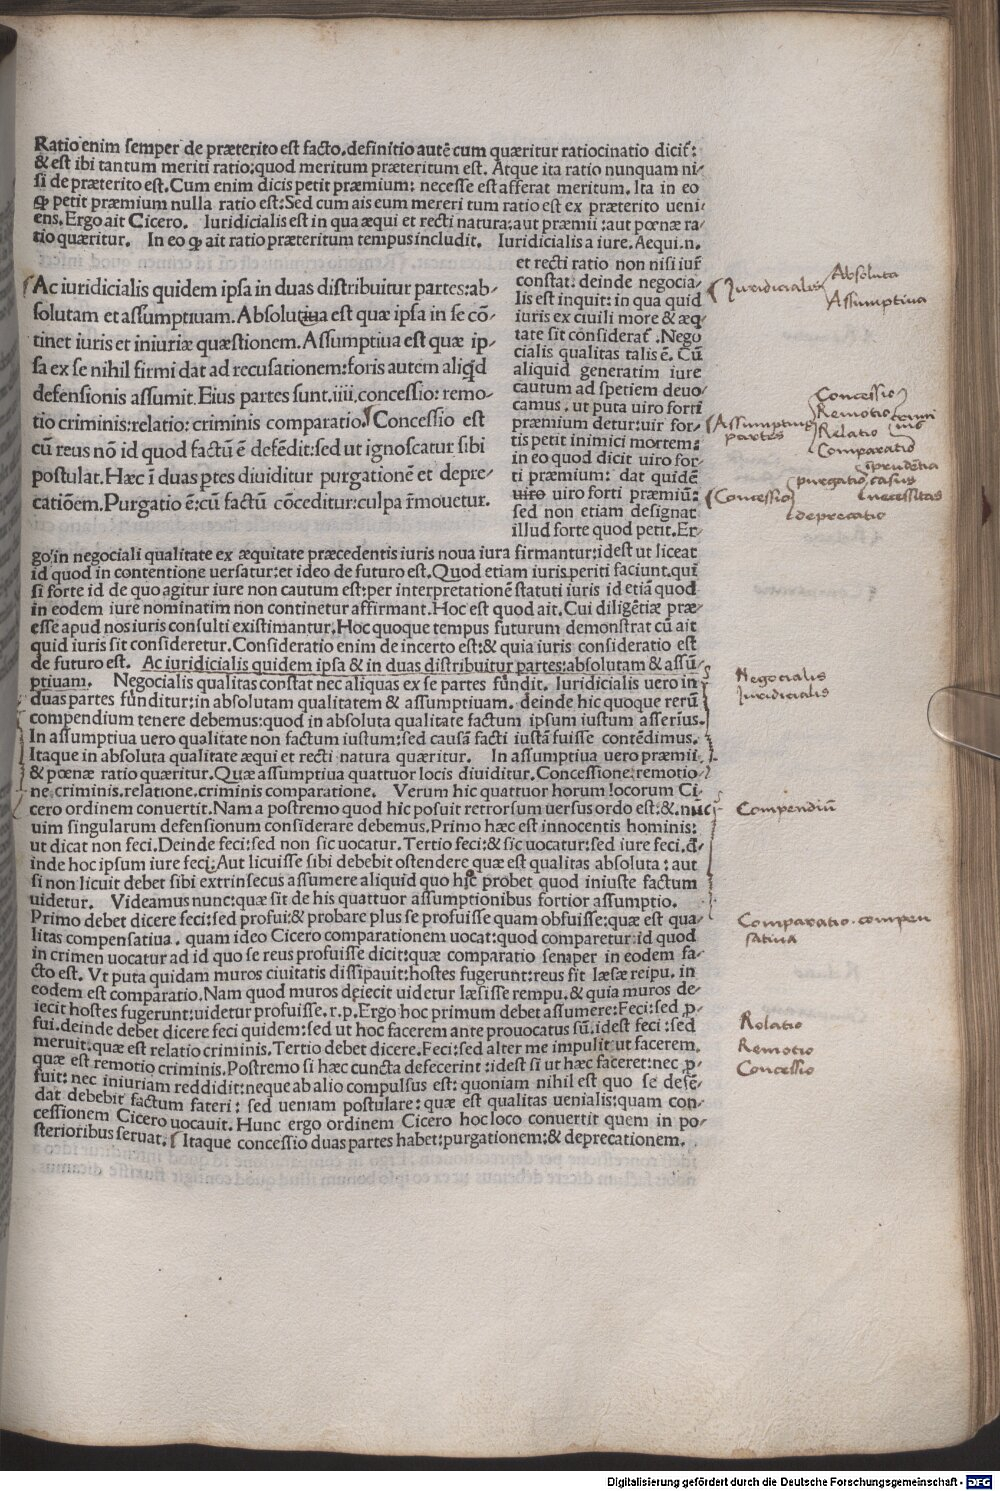 Ratio enim semper de præterito est facto.definitio autē cum quæritur ratiocinatio dicit̃:
& est ibi tantum meriti ratio:quod meritum præteritum est. Atque ita ratio nunquam ni-
si de præterito est.Cum enim dicis petit præmium: necesse est afferat meritum. Ita in eo
ꝙ petit præmium nulla ratio est:Sed cum ais eum mereri tum ratio est ex præterito ueni-
ens.Ergo ait Cicero. Iuridicialis est in qua æqui et recti natura:aut præmii :aut pœnæ ra-
tio quæritur. In eo ꝙ ait ratio præteritum tempus includit. Iuridicialis a iure.Aequi.n.
et recti ratio non nisi iur̃
constat. deinde negocia-
lis est inquit: in qua quid
iuris ex ciuili more & æq-
tate sit considerat̃ .Nego
cialis qualitas talis ē. Cū
aliquid generatim iure
cautum ad spetiem deuo-
camus . ut puta uiro forti
præmium detur:uir for-
tis petit inimici mortem:
in eo quod dicit uiro for-
ti præmium: dat quidē
uiro uiro forti præmiū:
sed non etiam designat
illud forte quod petit.Er-
Ac iuridicialis quidem ipsa in duas distribuitur partes:ab-
solutam et assumptiuam.Absolutiua est quæ ipsa in se cō-
tinet iuris et iniuriæ quæstionem.Assumptiua est quæ ip-
sa ex se nihil firmi dat ad recusationem:foris autem aliqd
defensionis assumit.Eius partes sunt.iiii.concessio: remo-
tio criminis:relatio: criminis comparatio. Concessio est
cū reus nō id quod factū ē defēdit:sed ut ignoscatur sibi
postulat.Hæc ī duas ptes diuiditur purgationē et depre-
catiōem.Purgatio ē:cū factū cōceditur:culpa r̄mouetur.
go in negociali qualitate ex æquitate præcedentis iuris noua iura firmantur:idest ut liceat
id quod in contentione uersatur:et ideo de futuro est.Quod etiam iuris periti faciunt.qui
si forte id de quo agitur iure non cautum est:per interpretationē statuti iuris id etiā quod
in eodem iure nominatim non continetur affirmant.Hoc est quod ait.Cui diligētiæ præ-
esse apud nos iuris consulti existimantur.Hoc quoque tempus futurum demonstrat cū ait
quid iuris sit consideretur.Consideratio enim de incerto est:& quia iuris consideratio est
de futuro est. Ac iuridicialis quidem ipsa & in duas distribuitur partes:absolutam & assū-
ptiuam. Negocialis qualitas constat nec aliquas ex se partes fūndit. Iuridicialis uero in
duas partes fūnditur:in absolutam qualitatem & assumptiuam. deinde hic quoque rerū
compendium tenere debemus:quod in absoluta qualitate factum ipsum iustum asserīus.
In assumptiua uero qualitate non factum iustum:sed causā facti iustā fuisse contēdimus.
Itaque in absoluta qualitate æqui et recti natura quæritur. In assumptiua uero præmii
& pœnæ ratio quæritur.Quæ assumptiua quattuor locis diuiditur.Concessione:remotio-
ne.criminis.relatione.criminis comparatione. Verum hic quattuor horum locorum Ci-
cero ordinem conuertit.Nam a postremo quod hic posuit retrorsum uersus ordo est:&.nūc
uim singularum defensionum considerare debemus.Primo hæc est innocentis hominis:
ut dicat non feci.Deinde feci:sed non sic uocatur.Tertio feci:& sic uocatur:sed iure feci.d-
inde hoc ipsum iure feci:Aut licuisse sibi debebit ostendere quæ est qualitas absoluta : aut
si non licuit debet sibi extrinsecus assumere aliquid quo hic probet quod iniuste factum
uidetur. Videamus nunc:quæ sit de his quattuor assumptionibus fortior assumptio.
Primo debet dicere feci:sed profui:& probare plus se profuisse quam obfuisse:quæ est qua-
litas compensatiua . quam ideo Cicero comparationem uocat:quod comparetur:id quod
in crimen uocatur ad id quo se reus profuisse dicit:quæ comparatio semper in eodem fa-
cto est. Vt puta quidam muros ciuitatis dissipauit:hostes fugerunt:reus fit læsæ reipu. in
eodem est comparatio.Nam quod muros deiecit uidetur læsisse rempu.& quia muros de-
iecit hostes fugerunt:uidetur profuisse.r.p.Ergo hoc primum debet assumere:Feci:sed ꝓ-
fui.deinde debet dicere feci quidem:sed ut hoc facerem ante prouocatus sū.idest feci :sed
meruit.quæ est relatio criminis.Tertio debet dicere.Feci:sed alter me impulit ut facerem.
quæ est remotio criminis.Postremo si hæc cuncta defecerint :idest si ut hæc faceret:nec ꝓ-
fuit: nec iniuriam reddidit:neque ab alio compulsus est: quoniam nihil est quo se defē-
dat debebit factum fateri: sed ueniam postulare: quæ est qualitas uenialis:quam con-
cessionem Cicero uocauit. Hunc ergo ordinem Cicero hoc loco conuertit quem in po-
sterioribus seruat. Itaque concessio duas partes habet:purgationem:& deprecationem.
Iuridicialis
Absoluta
Assumptiua
Assumptiue
partes
Concessio
Remotio
Relatio
Comparatio
Concessio
purgatio
casus
necessitas
deprecatio
Negocialis
Iuridicialis
Compendiū
Comparatio. compen
satiua
Rolatio
Remotio
Concessio
Digitalisierung gefördert durch die Deutsche Forschungsgemeinschaft - DFG